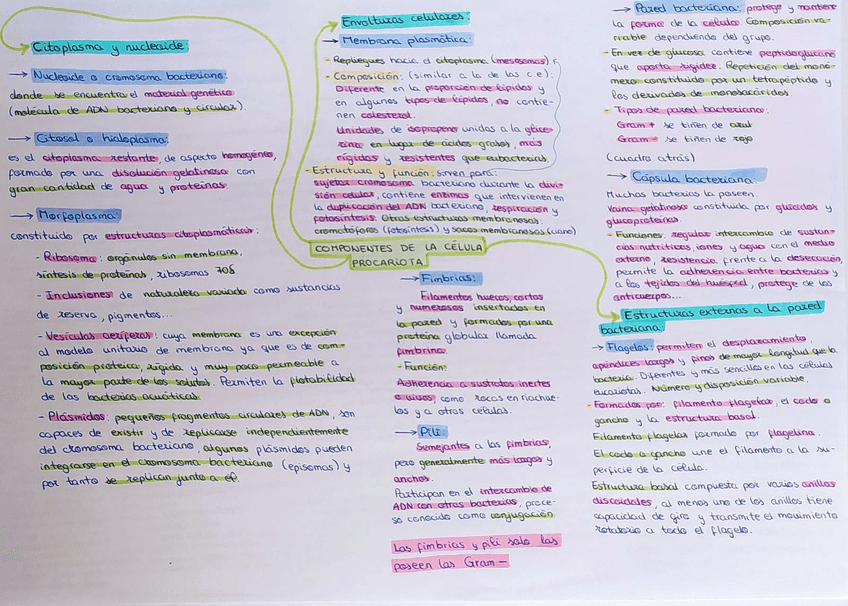 Citoplasma y nucleoide:
→ Nucleoide o cromosoma bacteriano:
donde se encuentra el material genético
(molécula de ADN bacteriano y circular).
→ Citosol o hialoplasma:
es el citoplasma restante, de aspecto homogéneo,
formado por una disolución gelatinosa con
gran cantidad de agua y proteínas.
→ Morfoplasma:
constituido por estructuras citoplasmáticas:
- Ribosoma: orgánulos sin membrana,
síntesis de proteínas, ribosomas 70S
- Inclusiones de naturaleza variada como sustancias
de reserva, pigmentos...
- Vesículas aeríferas: cuya membrana es una excepción
al modelo unitario de membrana ya que es de com-
posición proteica, rígida y muy poco permeable a
la mayor parte de los solutos. Permiten la flotabilidad
de las bacterias acuáticas.
- Plásmidos: pequeños fragmentos circulares de ADN, son
capaces de existir y de replicarse independientemente
del cromosoma bacteriano, algunos plásmidos pueden
integrarse en el cromosoma bacteriano (episomas) y
por tanto se replican junto a él.
Envolturas celulares:
→ Membrana plasmática:
- Repliegues hacia el citoplasma (mesosomas)
- Composición: (similar a la de las c.e):
Diferente en la proporción de lípidos y
en algunos tipos de lípidos, no contie-
nen colesterol.
Unidades de isopropeno unidas a la glice-
rina en lugar de ácidos grasos, más
rígidas y resistentes que eubacterias.
- Estructura y función: sirven para:
sujetar cromosoma bacteriano durante la divi-
sión celular, contiene enzimas que intervienen en
la duplicación del ADN bacteriano, respiración y
fotosíntesis. Otras estructuras membranosas:
cromatóforos (fotosíntesis) y sacos membranosos (ciano)
COMPONENTES DE LA CÉLULA
PROCARIOTA
→ Fimbrias:
Filamentos huecos, cortos
y numerosos insertados en
la pared y formados por una
proteína globular llamada
fimbrina.
- Función:
Adherencia a sustratos inertes
o vivos, como rocas en riachue-
los y a otras células.
→ Pili:
Semejantes a las fimbrias,
pero generalmente más largos y
anchos.
Participan en el intercambio de
ADN con otras bacterias, proce-
so conocido como conjugación
Las fimbrias y pili solo las
poseen las Gram -
→ Pared bacteriana: protege y mantiene
la forma de la célula. Composición va-
riable dependiendo del grupo.
- En vez de glucosa contiene peptidoglucano
que aporta rigidez. Repetición del monó-
mero constituido por un tetrapéptido y
los derivados de monosacáridos.
- Tipos de pared bacteriana:
Gram + se tiñen de azul
Gram - se tiñen de rojo
(cuadro atrás)
→ Cápsula bacteriana:
Muchas bacterias la poseen.
Vaina gelatinosa constituida por glúcidos y
glucoproteínas.
- Funciones: regular intercambio de sustan-
cias nutritivas, iones y agua con el medio
externo, resistencia frente a la desecación,
permite la adherencia entre bacterias y
a los tejidos del huésped, protege de los
anticuerpos...
Estructuras externas a la pared
bacteriana:
→ Flagelos: permiten el desplazamiento,
apéndices largos y finos de mayor longitud que la
bacteria. Diferentes y más sencillos en las células
eucariotas. Número y disposición variable.
- Formados por: filamento flagelar, el codo o
gancho y la estructura basal.
Filamento flagelar formado por flagelina.
El codo o gancho une el filamento a la su-
perficie de la célula.
Estructura basal compuesta por varios anillos
discoidales, al menos uno de los anillos tiene
capacidad de giro y transmite el movimiento
rotatorio a todo el flagelo.